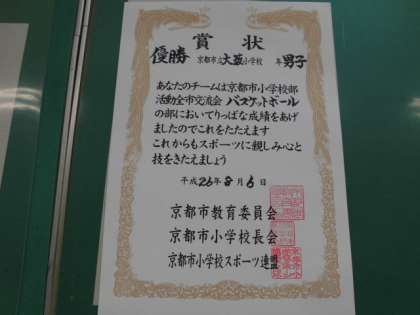 賞状
優勝 京都市立大藪小学校 年男子
あなたのチームは京都市小学校部
活動全市交流会バスケットボール
の部においてりっぱな成績をあげ
ましたのでこれをたたえます
これからもスポーツに親しみ心と
技をきたえましょう
平成26年8月6日
京都市教育委員会
京都市小学校長会
京都市小学校スポーツ連盟